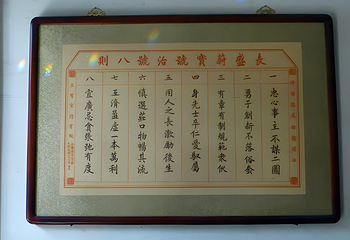 長盛蔚寶號治號八則
一 忠心事主不謀二圖
二 勇于創新不落俗套
三 有章有制規範衆伙
四 身先士卒仁愛馭屬
五 用人之長激勵後生
六 慎選莊口物暢其流
七 至清盈虛一本萬利
八 宜廣忌貪弛有度